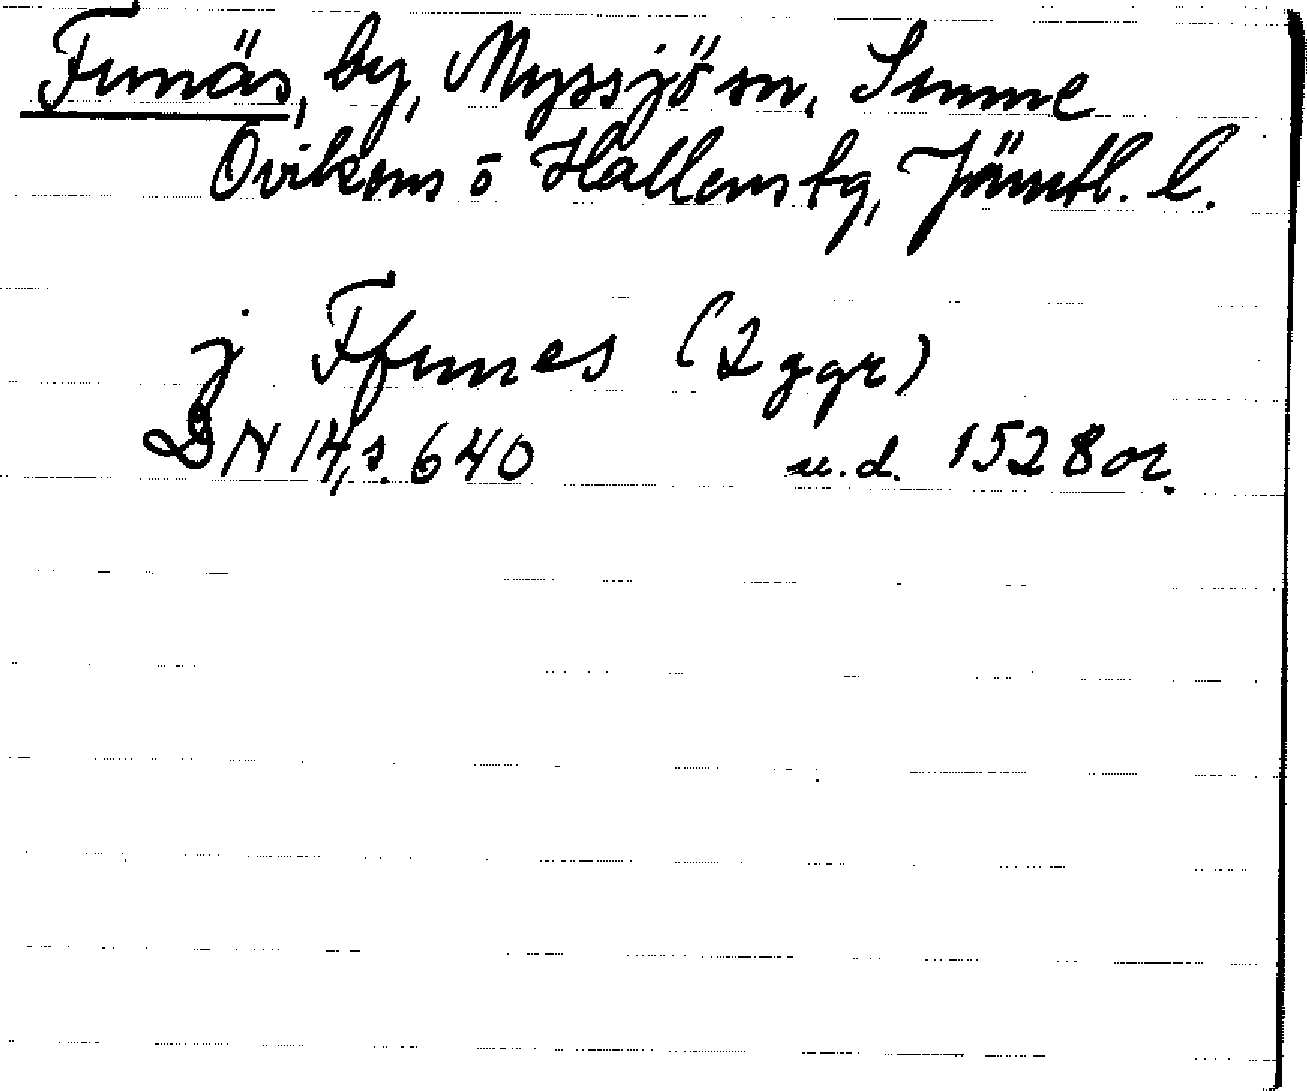 Funäs, by, Myssjö sn, Sunne
Ovikens o Hallens tg, Jämtl. l.
j Ffunes (2 ggr)
DN 14, s. 640 u.d. 1528 or.